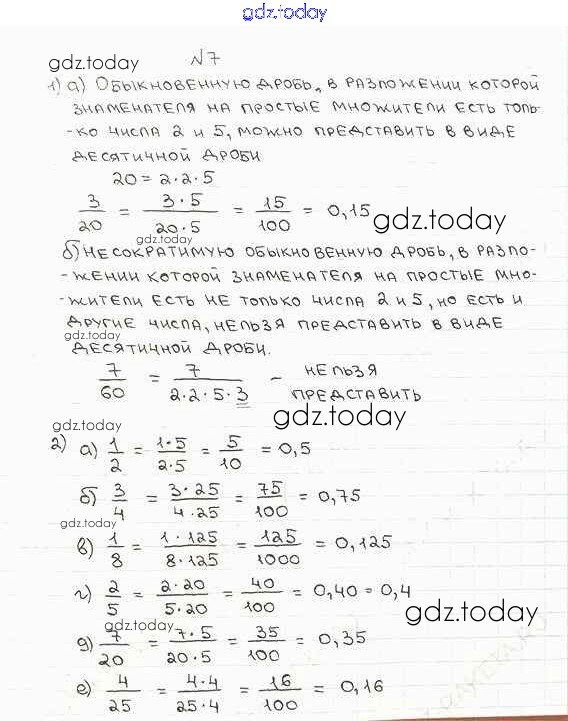 gdz.today
gdz.today
№7
1) а) Обыкновенную дробь, в разложении которой
знаменателя на простые множители есть толь-
-ко числа 2 и 5, можно представить в виде
десятичной дроби
20 = 2·2·5
3/20 = 3·5/20·5 = 15/100 = 0,15
gdz.today
gdz.today
б) Несократимую обыкновенную дробь, в разло-
-жении которой знаменателя на простые мно-
-жители есть не только числа 2 и 5, но есть и
другие числа, нельзя представить в виде
gdz.today
десятичной дроби.
7/60 = 7/2·2·5·3 – нельзя
представить
gdz.today
gdz.today
2) а) 1/2 = 1·5/2·5 = 5/10 = 0,5
б) 3/4 = 3·25/4·25 = 75/100 = 0,75
gdz.today
в) 1/8 = 1·125/8·125 = 125/1000 = 0,125
г) 2/5 = 2·20/5·20 = 40/100 = 0,40 = 0,4
gdz.today
gdz.today
д) 7/20 = 7·5/20·5 = 35/100 = 0,35
е) 4/25 = 4·4/25·4 = 16/100 = 0,16